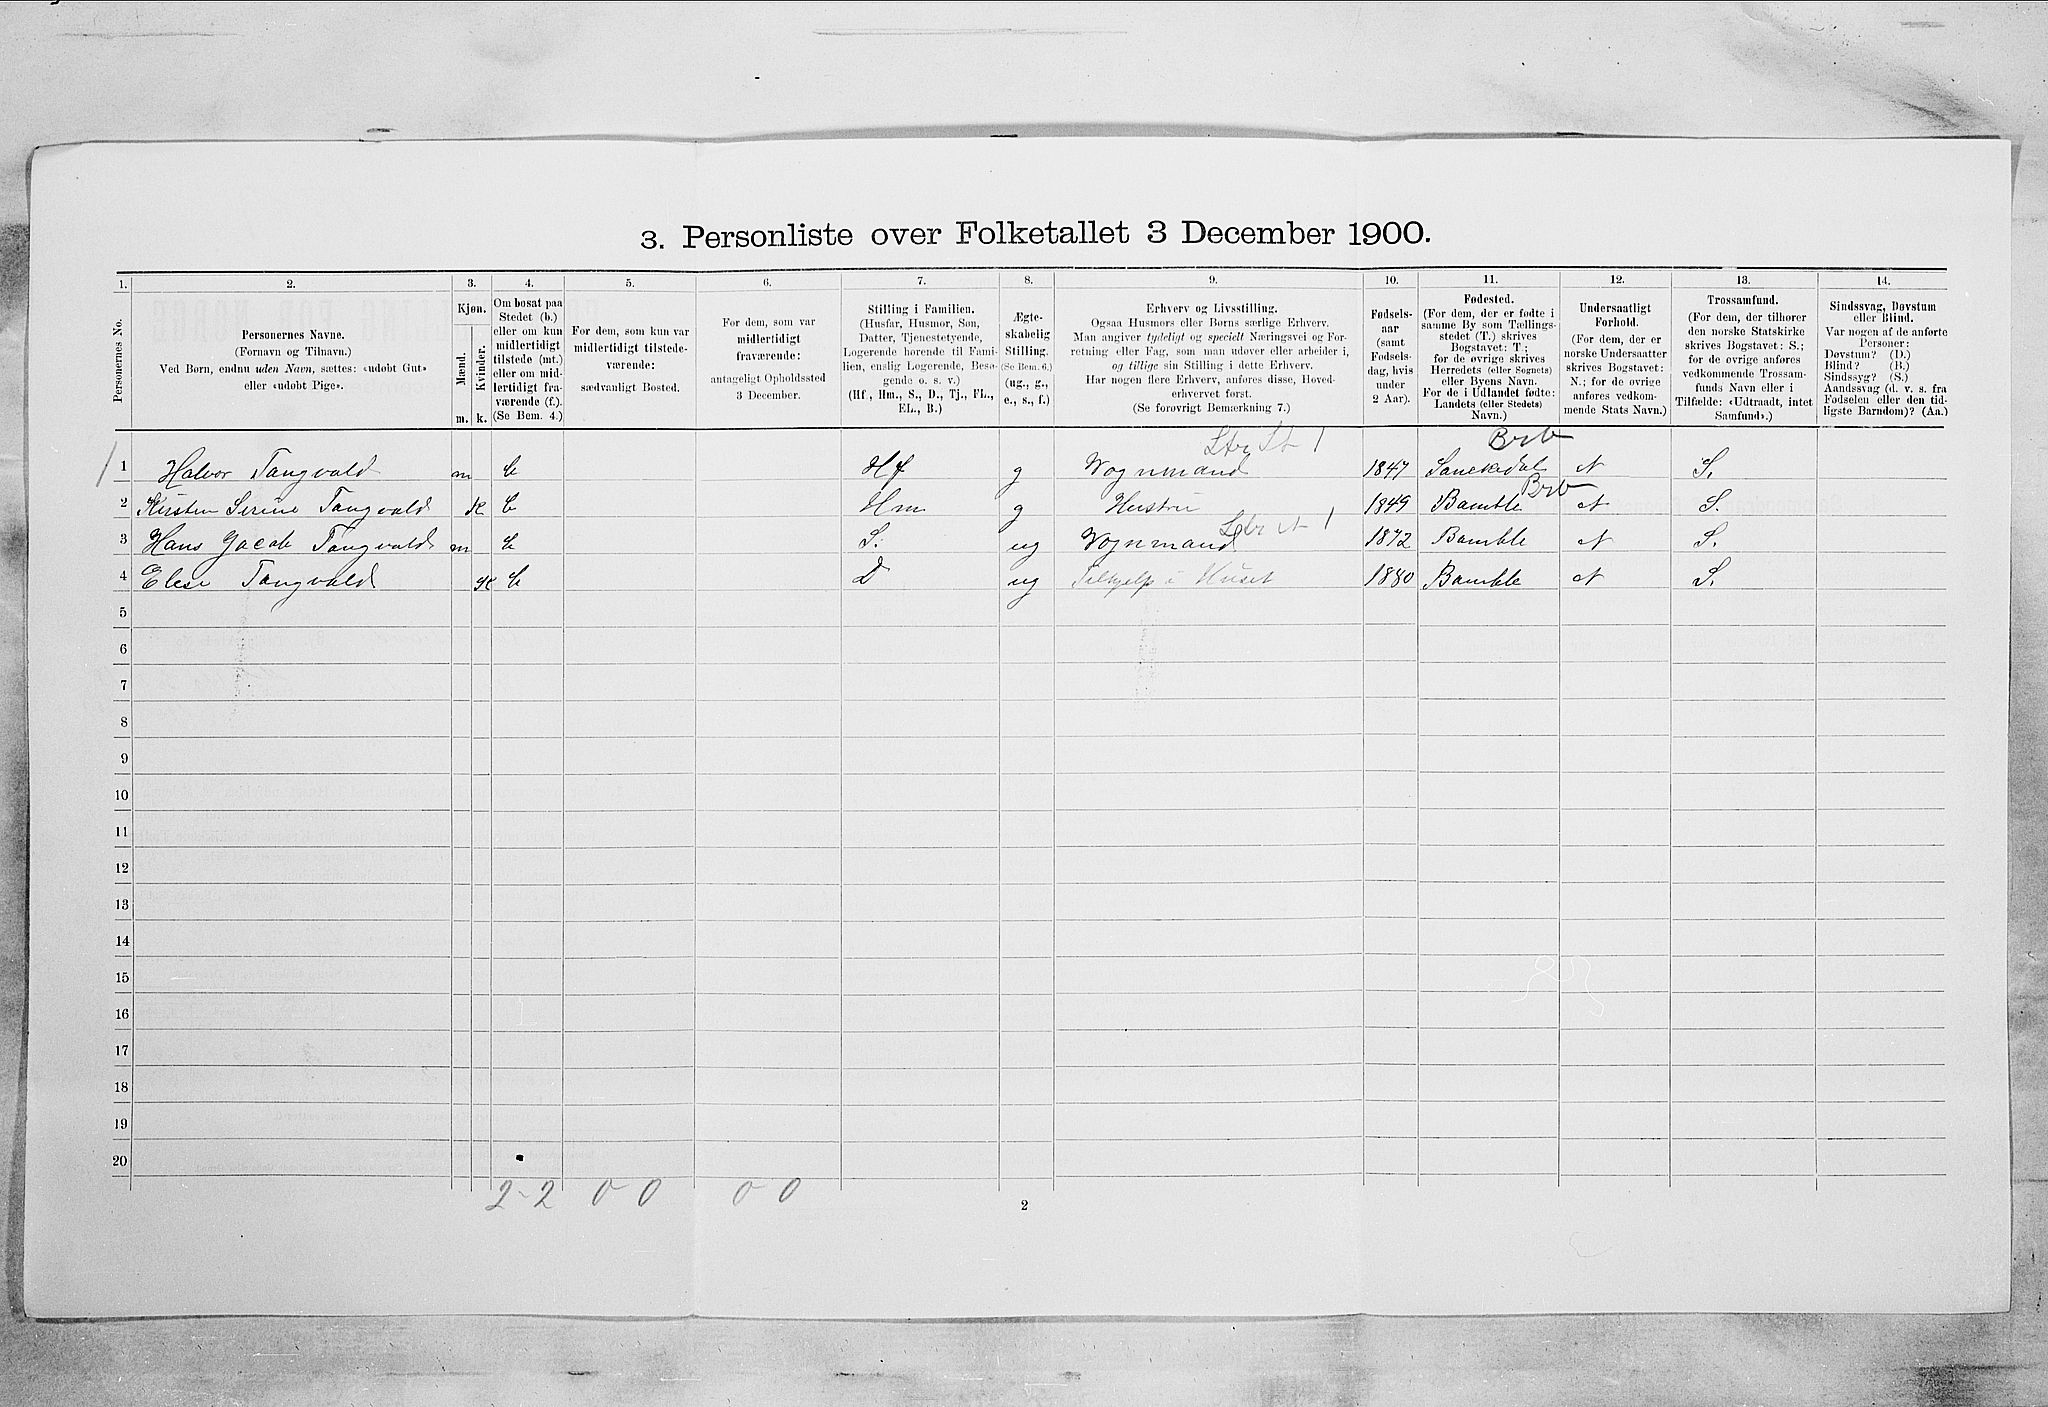 3. Personliste over Folketallet 3 December 1900.
1. 2. 3. 4. 5. 6. 7. 8. 9. 10. 11. 12. 13. 14.
Personernes No.
Personernes Navne.
(Fornavn og Tilnavn.)
Ved Børn, endnu uden Navn, sættes: «udøbt Gut»
eller «udøbt Pige».
Kjøn.
Mænd.
Kvinder.
m. k.
Om bosat paa
Stedet (b.)
eller om kun
midlertidigt
tilstede (mt.)
eller om mid-
lertidigt fra-
værende (f.).
(Se Bem. 4.)
For dem, som kun var
midlertidigt tilstede-
værende:
sædvanligt Bosted.
For dem, som var
midlertidigt
fraværende:
antageligt Opholdssted
3 December.
Stilling i Familien.
(Husfar, Husmor, Søn,
Datter, Tjenestetyende,
Logerende hørende til Fami-
lien, enslig Logerende, Besø-
gende o. s. v.)
(Hf., Hm., S., D., Tj., FL.,
EL., B.)
Ægte-
skabelig
Stilling.
(Se Bem. 6.)
(ug., g.,
e., s., f.)
Erhverv og Livsstilling.
Ogsaa Husmors eller Børns særlige Erhverv.
Man angiver tydeligt og specielt Næringsvei og For-
retning eller Fag, som man udøver eller arbeider i,
og tillige sin Stilling i dette Erhverv.
Har nogen flere Erhverv, anføres disse, Hoved-
erhvervet først.
(Se forøvrigt Bemærkning 7.)
Fødsels-
aar
(samt
Fødsels-
dag, hvis
under
2 Aar).
Fødested.
(For dem, der er fødte i
samme By som Tællings-
stedet (T.) skrives
Bogstavet: T.;
for de øvrige skrives
Herredets (eller Sognets)
eller Byens Navn.
For de i Udlandet fødte:
Landets (eller Stedets)
Navn.)
Undersaatligt
Forhold.
(For dem, der er
norske Undersaatter
skrives Bogstavet:
N.; for de øvrige
anføres vedkom-
mende Stats Navn.)
Trossamfund.
(For dem, der tilhører
den norske Statskirke
skrives Bogstavet: S.;
for de øvrige anføres
vedkommende Trossam-
funds Navn eller i
Tilfælde: «Udtraadt, intet
Samfund».)
Sindssvag, Døvstum
eller Blind.
Var nogen af de anførte
Personer:
Døvstum? (D.)
Blind? (B.)
Sindssyg? (S.)
Aandssvag (d. v. s. fra
Fødselen eller den tid-
ligste Barndom)? (Aa.)
1 Halvor Tangvald m b Hf g Vognmand 1847 Sanekedal N S.
2 Kirsten Serine Tangvald K b Hm g Hustru 1849 Bamble N S.
3 Hans Jacob Tangvald m b S. ug Vognmand 1872 Bamble N S.
4 Elese Tangvald K b D ug Tilhjelp i Huset 1880 Bamble N S.
5
6
7
8
9
10
11
12
13
14
15
16
17
18
19
20
2-2 0 0 0 0
2